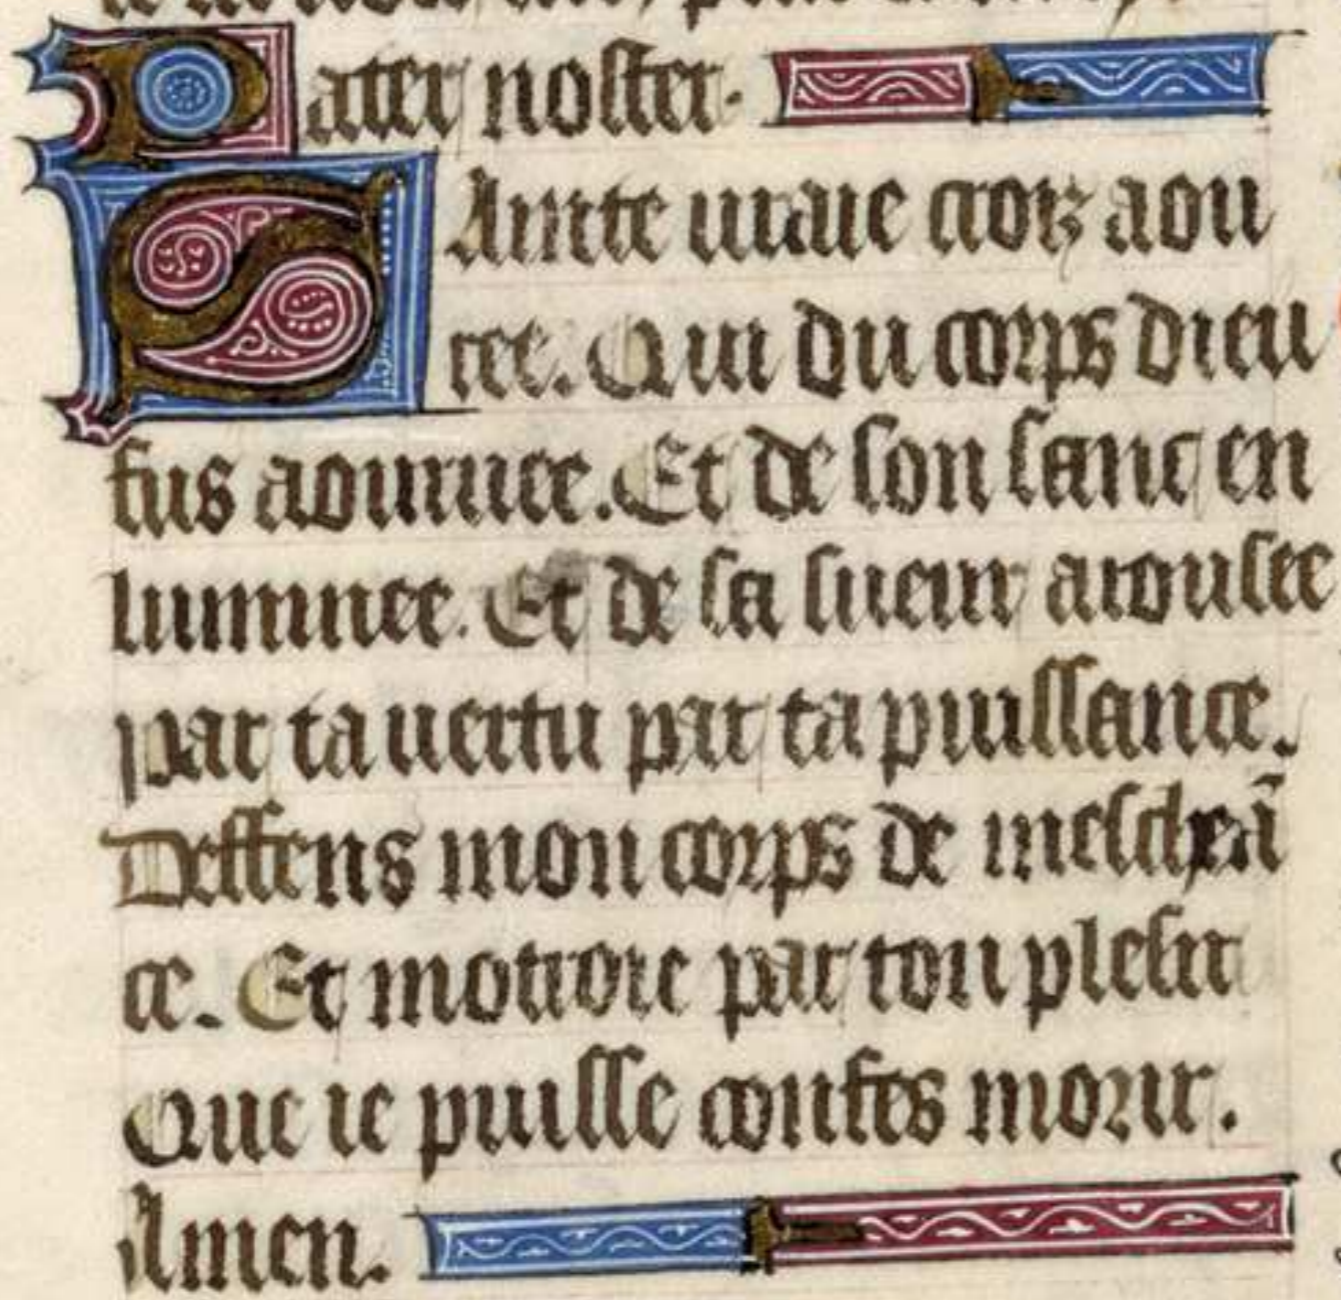 Pater noster.
SAinte uraie croiz aou
ree. Qui du corps dieu
fus aournee. Et de son sanc en
luminee. Et de sa sueur arousee
par ta uertu par ta puissance.
Deffens mon corps de mescheã
ce. Et motroie par ton plesir
Que ie puisse confes morir.
Amen.